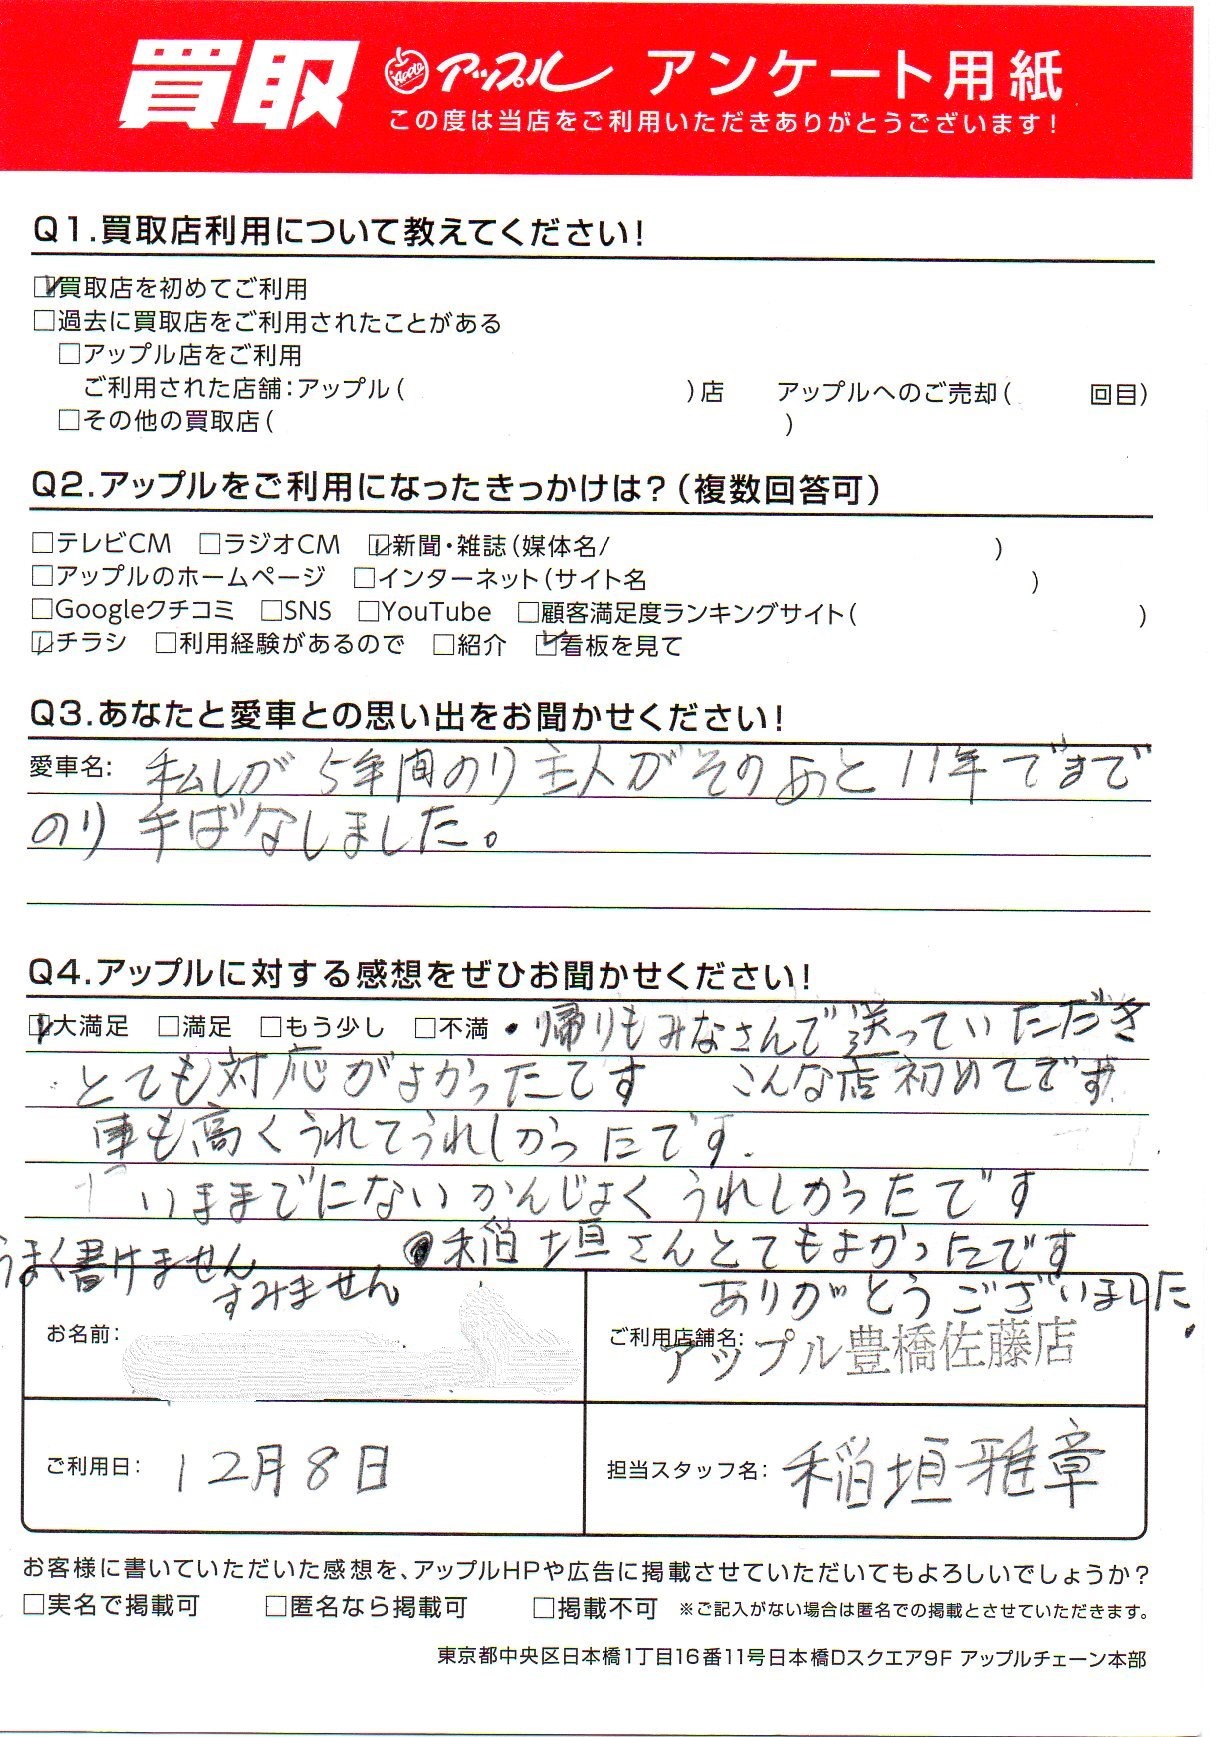 買取 Apple アップル アンケート用紙
この度は当店をご利用いただきありがとうございます!
Q1.買取店利用について教えてください!
☑買取店を初めてご利用
□過去に買取店をご利用されたことがある
□アップル店をご利用
ご利用された店舗:アップル( )店 アップルへのご売却( 回目)
□その他の買取店( )
Q2.アップルをご利用になったきっかけは?(複数回答可)
□テレビCM □ラジオCM ☑新聞・雑誌(媒体名/ )
□アップルのホームページ □インターネット(サイト名 )
□Googleクチコミ □SNS □YouTube □顧客満足度ランキングサイト( )
☑チラシ □利用経験があるので □紹介 ☑看板を見て
Q3.あなたと愛車との思い出をお聞かせください!
愛車名: 私しが5年間のり主人がそのあと11年でまで
のり手ばなしました。
Q4.アップルに対する感想をぜひお聞かせください!
☑大満足 □満足 □もう少し □不満 ・帰りもみなさんで送っていただき
とても対応がよかったです こんな店初めてです
車も高くうれてうれしかったです.
いままでにないかんじよくうれしかったです
うまく書けません ●稲垣さんとてもよかったです
すみません ありがとうございました.
お名前: ご利用店舗名:
アップル豊橋佐藤店
ご利用日: 12月8日 担当スタッフ名: 稲垣雅章
お客様に書いていただいた感想を、アップルHPや広告に掲載させていただいてもよろしいでしょうか?
□実名で掲載可 □匿名なら掲載可 □掲載不可 ※ご記入がない場合は匿名での掲載とさせていただきます。
東京都中央区日本橋1丁目16番11号日本橋Dスクエア9F アップルチェーン本部